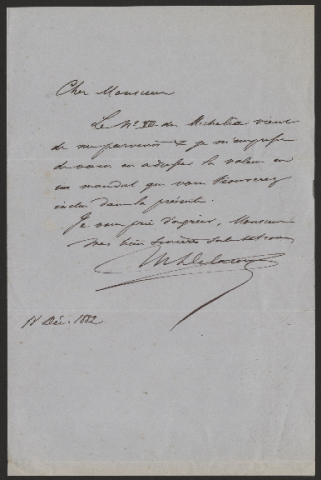 Cher Monsieur
Le N° VII de Michelia vient
de me parvenir & je m'empresse
de vous en adresser la valeur en
un mandat que vous trouverez
inclus dans la présente.
Je vous prie d'agréer, Monsieur
mes bien sincères salutations
18 Déc. 1882